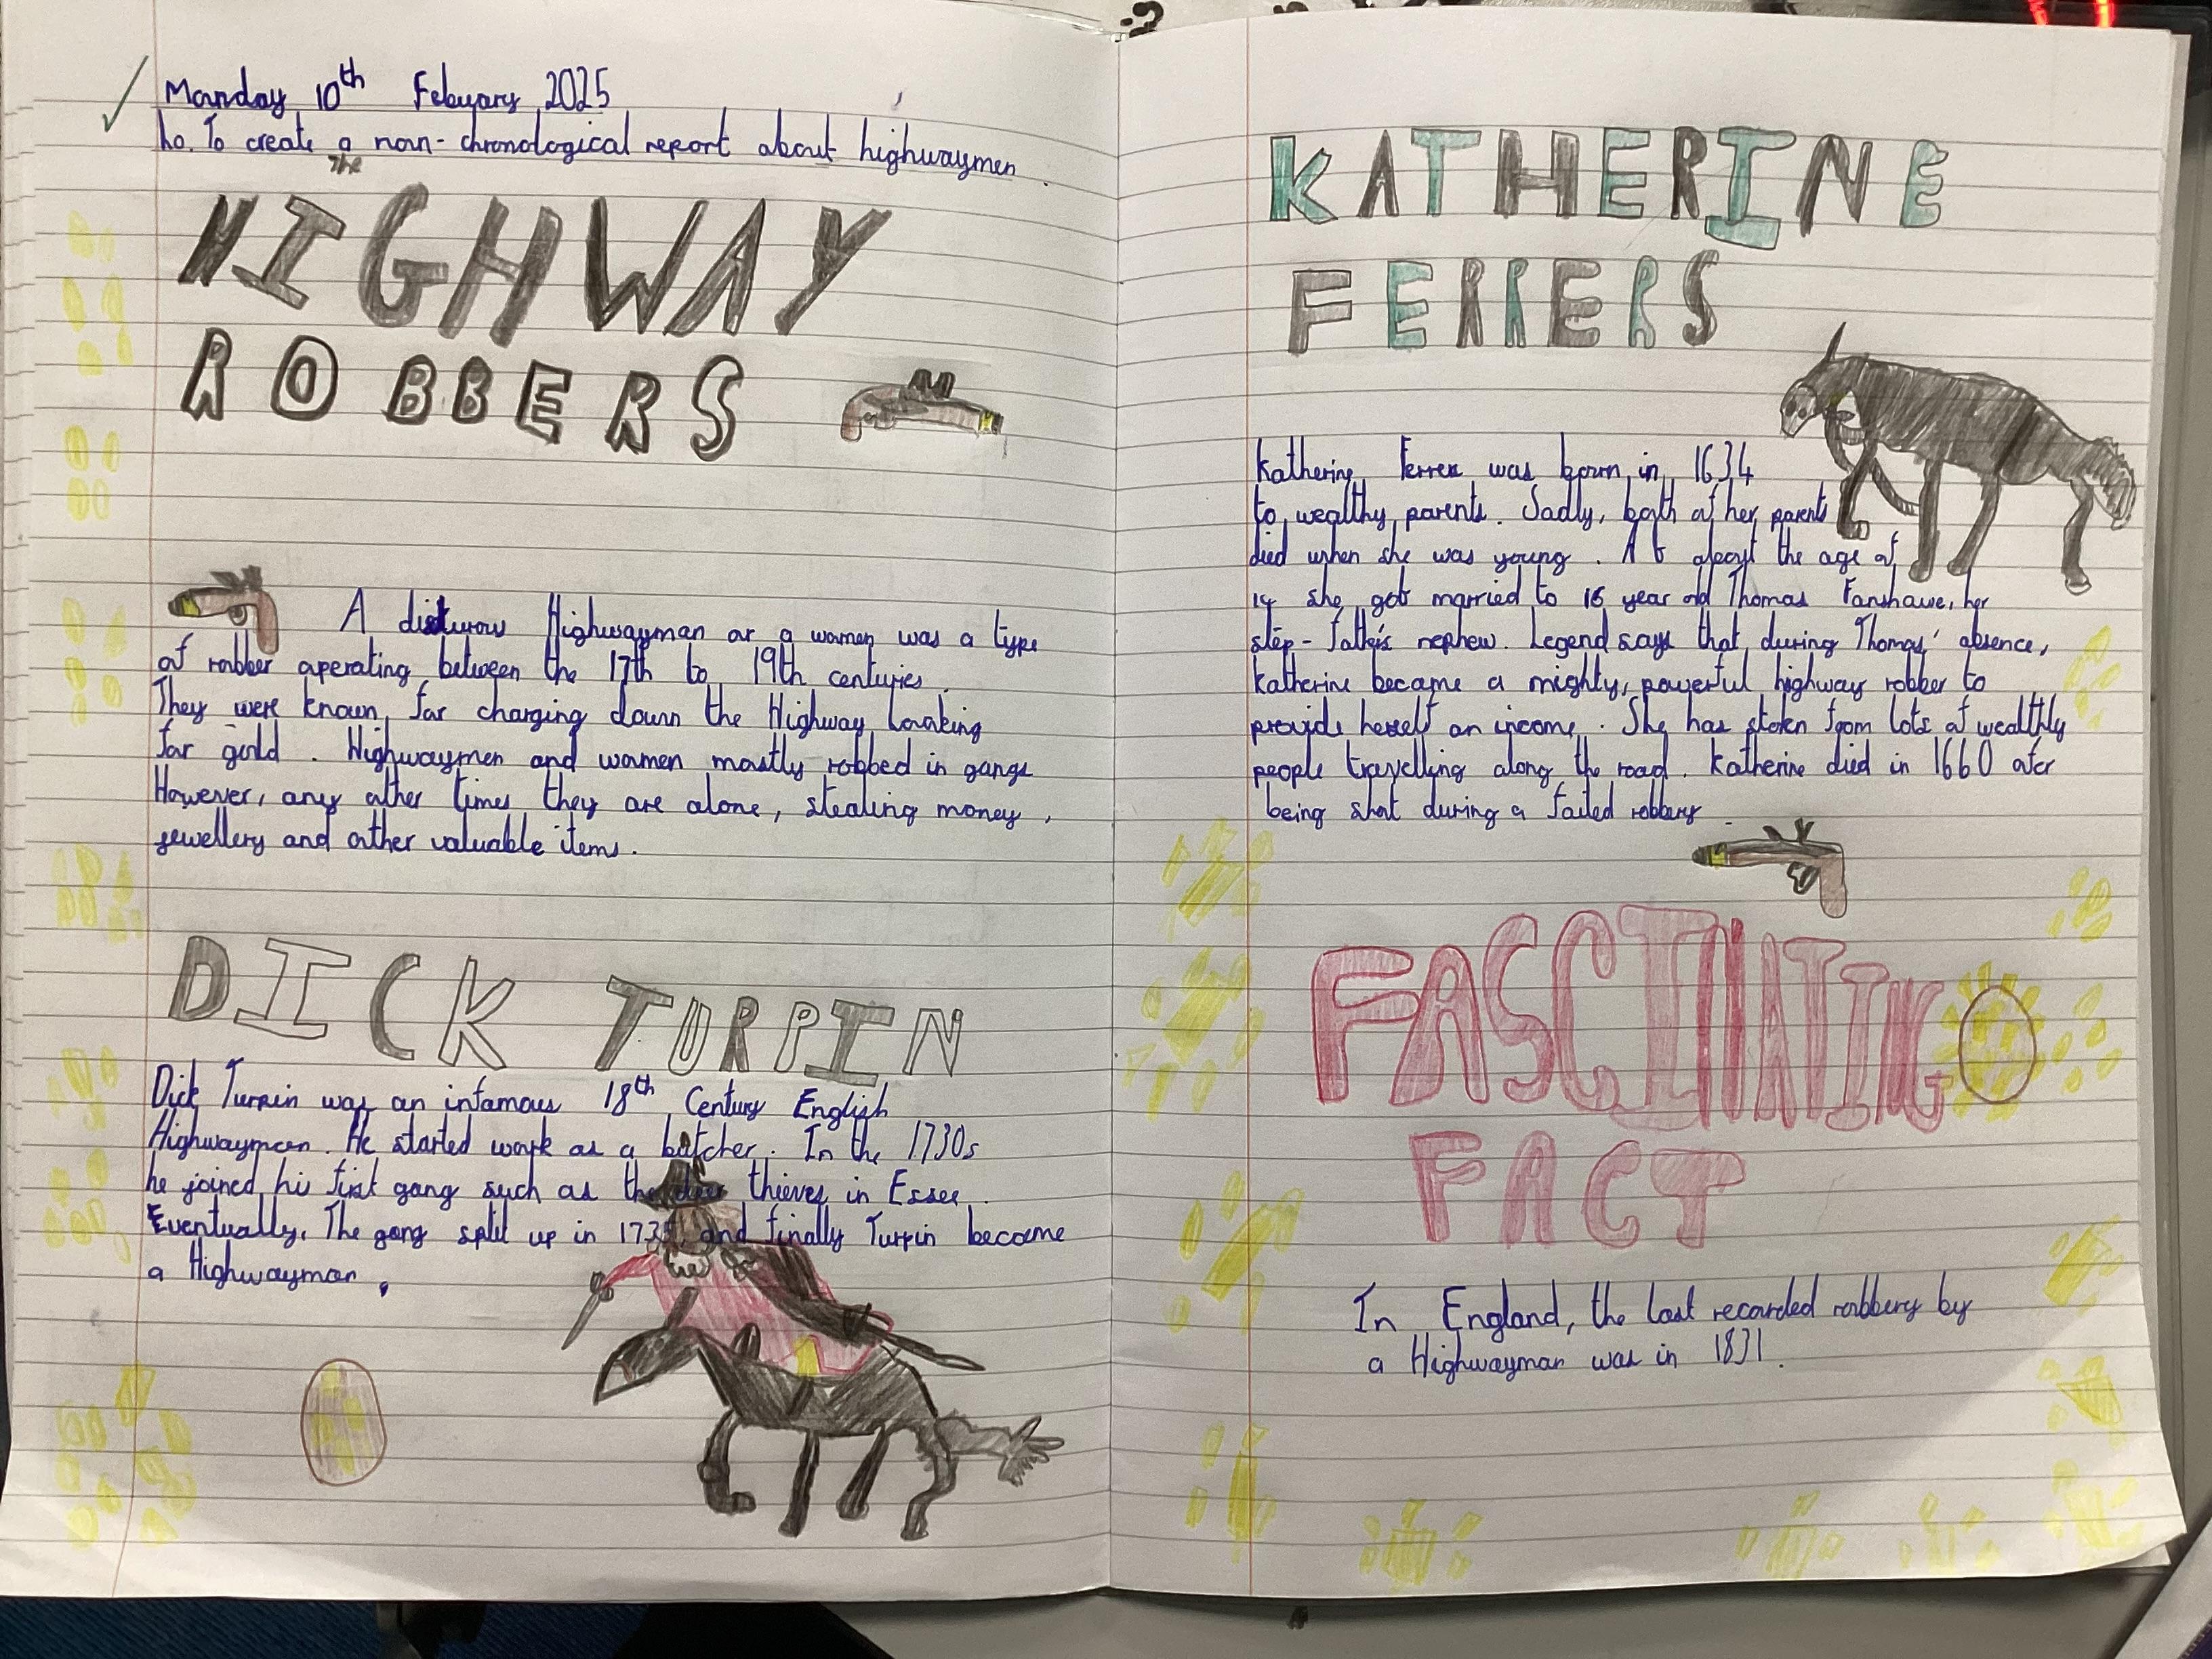 Monday 10th Febuary 2025
Lo. To create a non-chronological report about highwaymen.
The
HIGHWAY
ROBBERS
A Highwayman or a women was a type
of robber operating between the 17th to 19th centuries.
They were known for charging down the Highway Looking
for gold. Highwaymen and women mostly robbed in gangs
However, any other times they are alone, stealing money,
jewellery and other valuable items.
DICK TURPIN
Dick Turpin was an infamous 18th Century English
Highwaymen. He started work as a butcher. In the 1730s
he joined his first gang such as the deer thieves in Essex.
Eventually, The gang split up in 1735, and finally Turpin become
a Highwayman.
KATHERINE
FERRERS
Katherine was born in 1634
to wealthy parents. Sadly, both of her parents
died when she was young. At about the age of
14 she got married to 16 year old Thomas Fanshawe, her
step-father's nephew. Legend says that during Thomas' absence,
Katherine became a mighty, powerful highway robber to
provide herself an income. She has stolen from lots of wealthly
people travelling along the road. Katherine died in 1660 after
being shot during a failed robbery.
FASCINATING
FACT
In England, the last recorded robbery by
a Highwayman was in 1831.